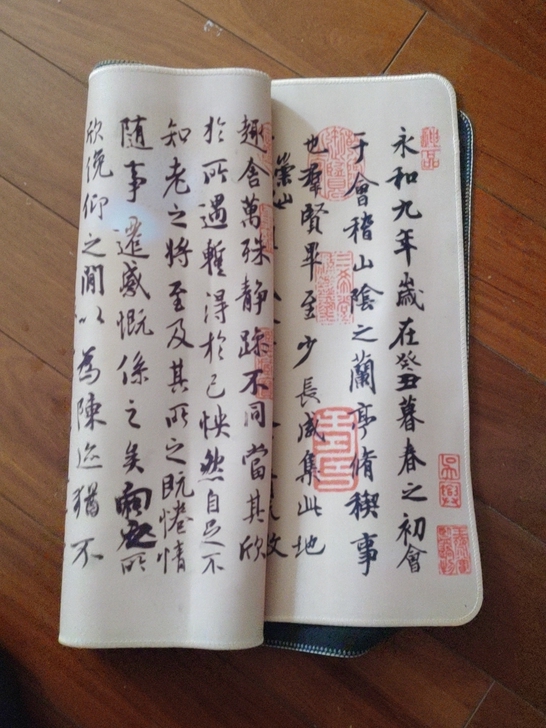 神品
永和九年歲在癸丑暮春之初會
于會稽山陰之蘭亭脩稧事
也羣賢畢至少長咸集此地
崇山
趣舍萬殊靜躁不同當其欣
於所遇暫得於己怏然自足不
知老之將至及其所之既惓情
隨事遷感慨係之矣向之所
欣俛仰之閒以為陳迹猶不